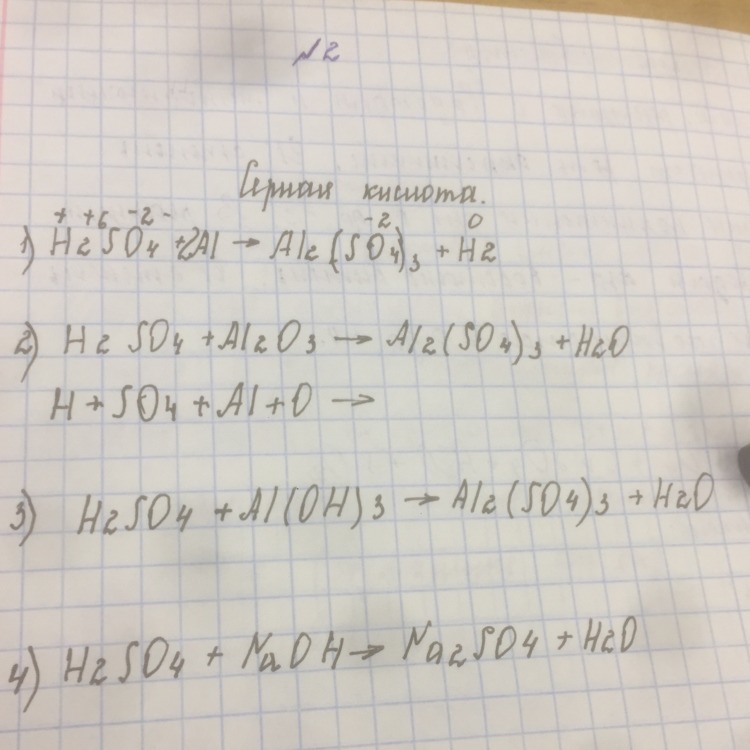 №2
Серная кислота.
+ +6 -2 - -2 0
1) H2SO4 + 2Al → Al2(SO4)3 + H2
2) H2SO4 + Al2O3 → Al2(SO4)3 + H2O
H + SO4 + Al + O →
3) H2SO4 + Al(OH)3 → Al2(SO4)3 + H2O
4) H2SO4 + NaOH → Na2SO4 + H2O